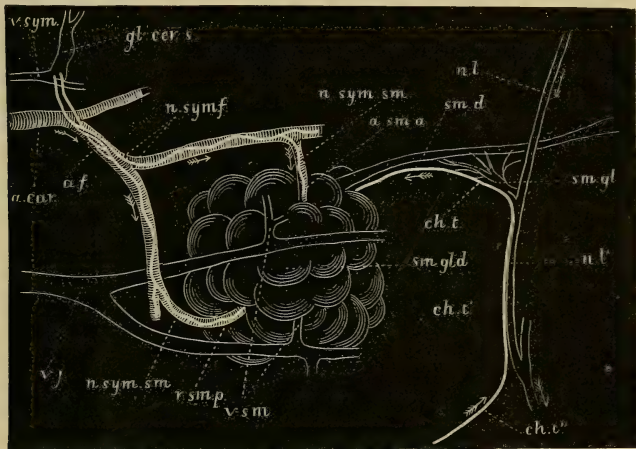 v.sym.
gl.cer.s.
n.l
n.symf.
n.sym.sm
a.sm.a
sm.d
a.f
a.car.
sm.gl
ch.t.
sm.gld
n.l'
ch.t'
v.j
n.sym.sm
v.sm
ch.t"